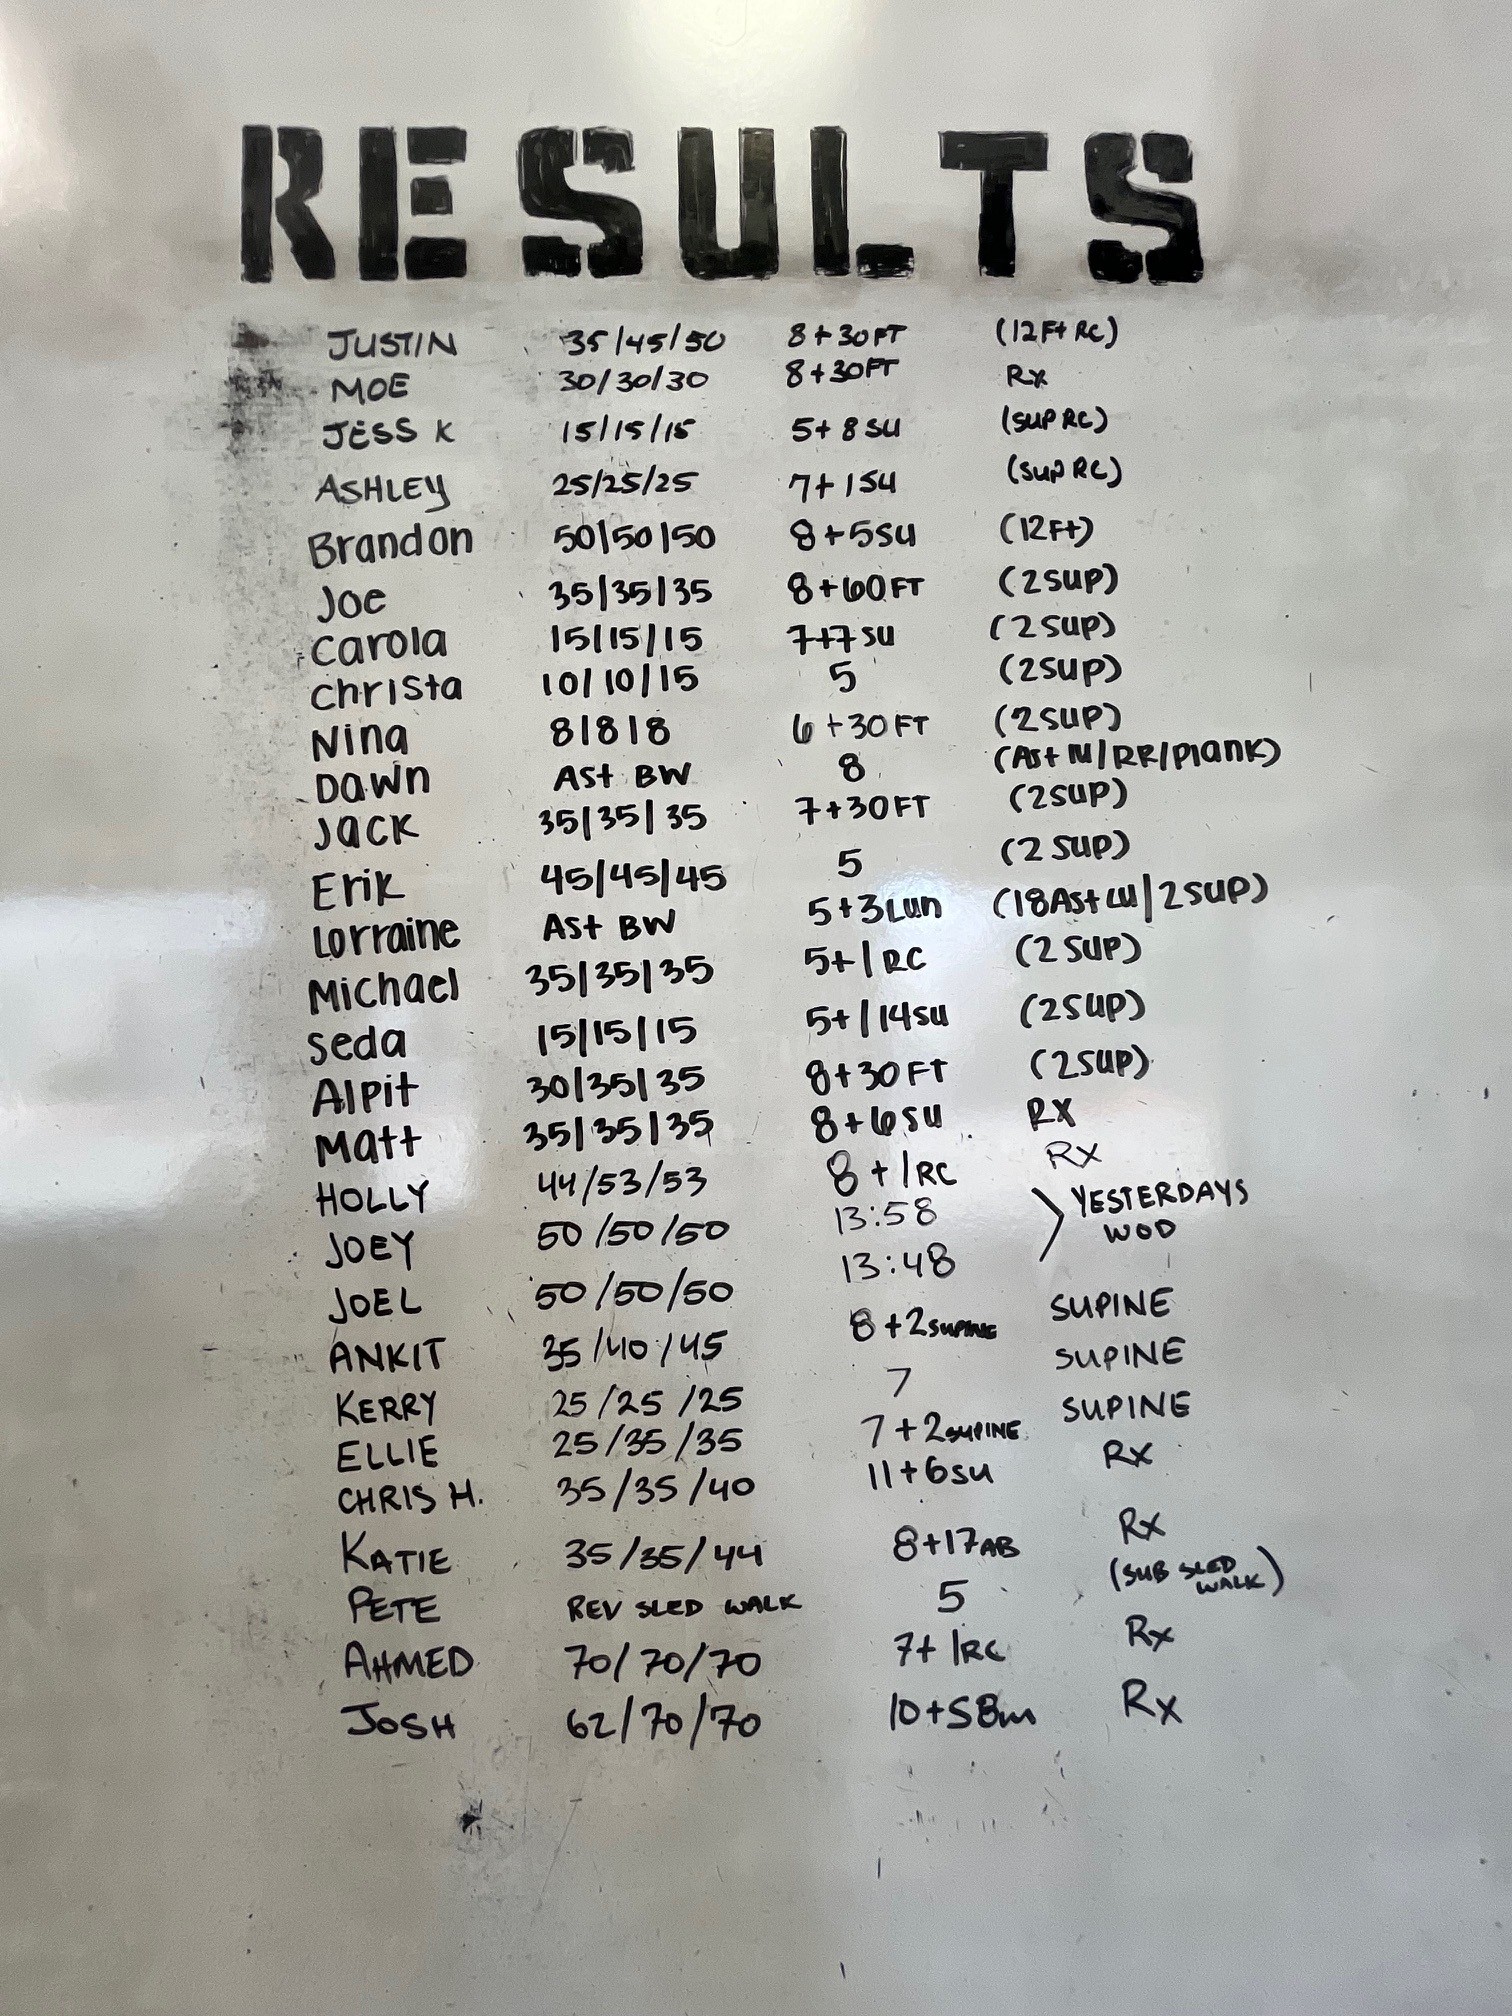 RESULTS
JUSTIN 35/45/50 8+30FT (12Ft RC)
MOE 30/30/30 8+30FT Rx
JESS K 15/15/15 5+8SU (SUP RC)
ASHLEY 25/25/25 7+1SU (SUP RC)
Brandon 50/50/50 8+5SU (12Ft)
Joe 35/35/35 8+60FT (2SUP)
Carola 15/15/15 7+7SU (2SUP)
Christa 10/10/15 5 (2SUP)
Nina 8/8/8 6+30FT (2SUP)
Dawn Ast BW 8 (Ast LU/RR/Plank)
Jack 35/35/35 7+30FT (2SUP)
Erik 45/45/45 5 (2SUP)
Lorraine Ast BW 5+3Lun (18Ast LU/2SUP)
Michael 35/35/35 5+1RC (2SUP)
Seda 15/15/15 5+/14SU (2SUP)
Alpit 30/35/35 8+30FT (2SUP)
Matt 35/35/35 8+6SU RX
HOLLY 44/53/53 8+1RC Rx
JOEY 50/50/50 13:58 YESTERDAYS
JOEL 50/50/50 13:48 WOD
ANKIT 35/40/45 8+2SUPINE SUPINE
KERRY 25/25/25 7 SUPINE
ELLIE 25/35/35 7+2SUPINE SUPINE
CHRIS H. 35/35/40 11+6SU Rx
KATIE 35/35/44 8+17AB Rx
PETE REV SLED WALK 5 (SUB SLED WALK)
AHMED 70/70/70 7+1RC Rx
JOSH 62/70/70 10+58m Rx